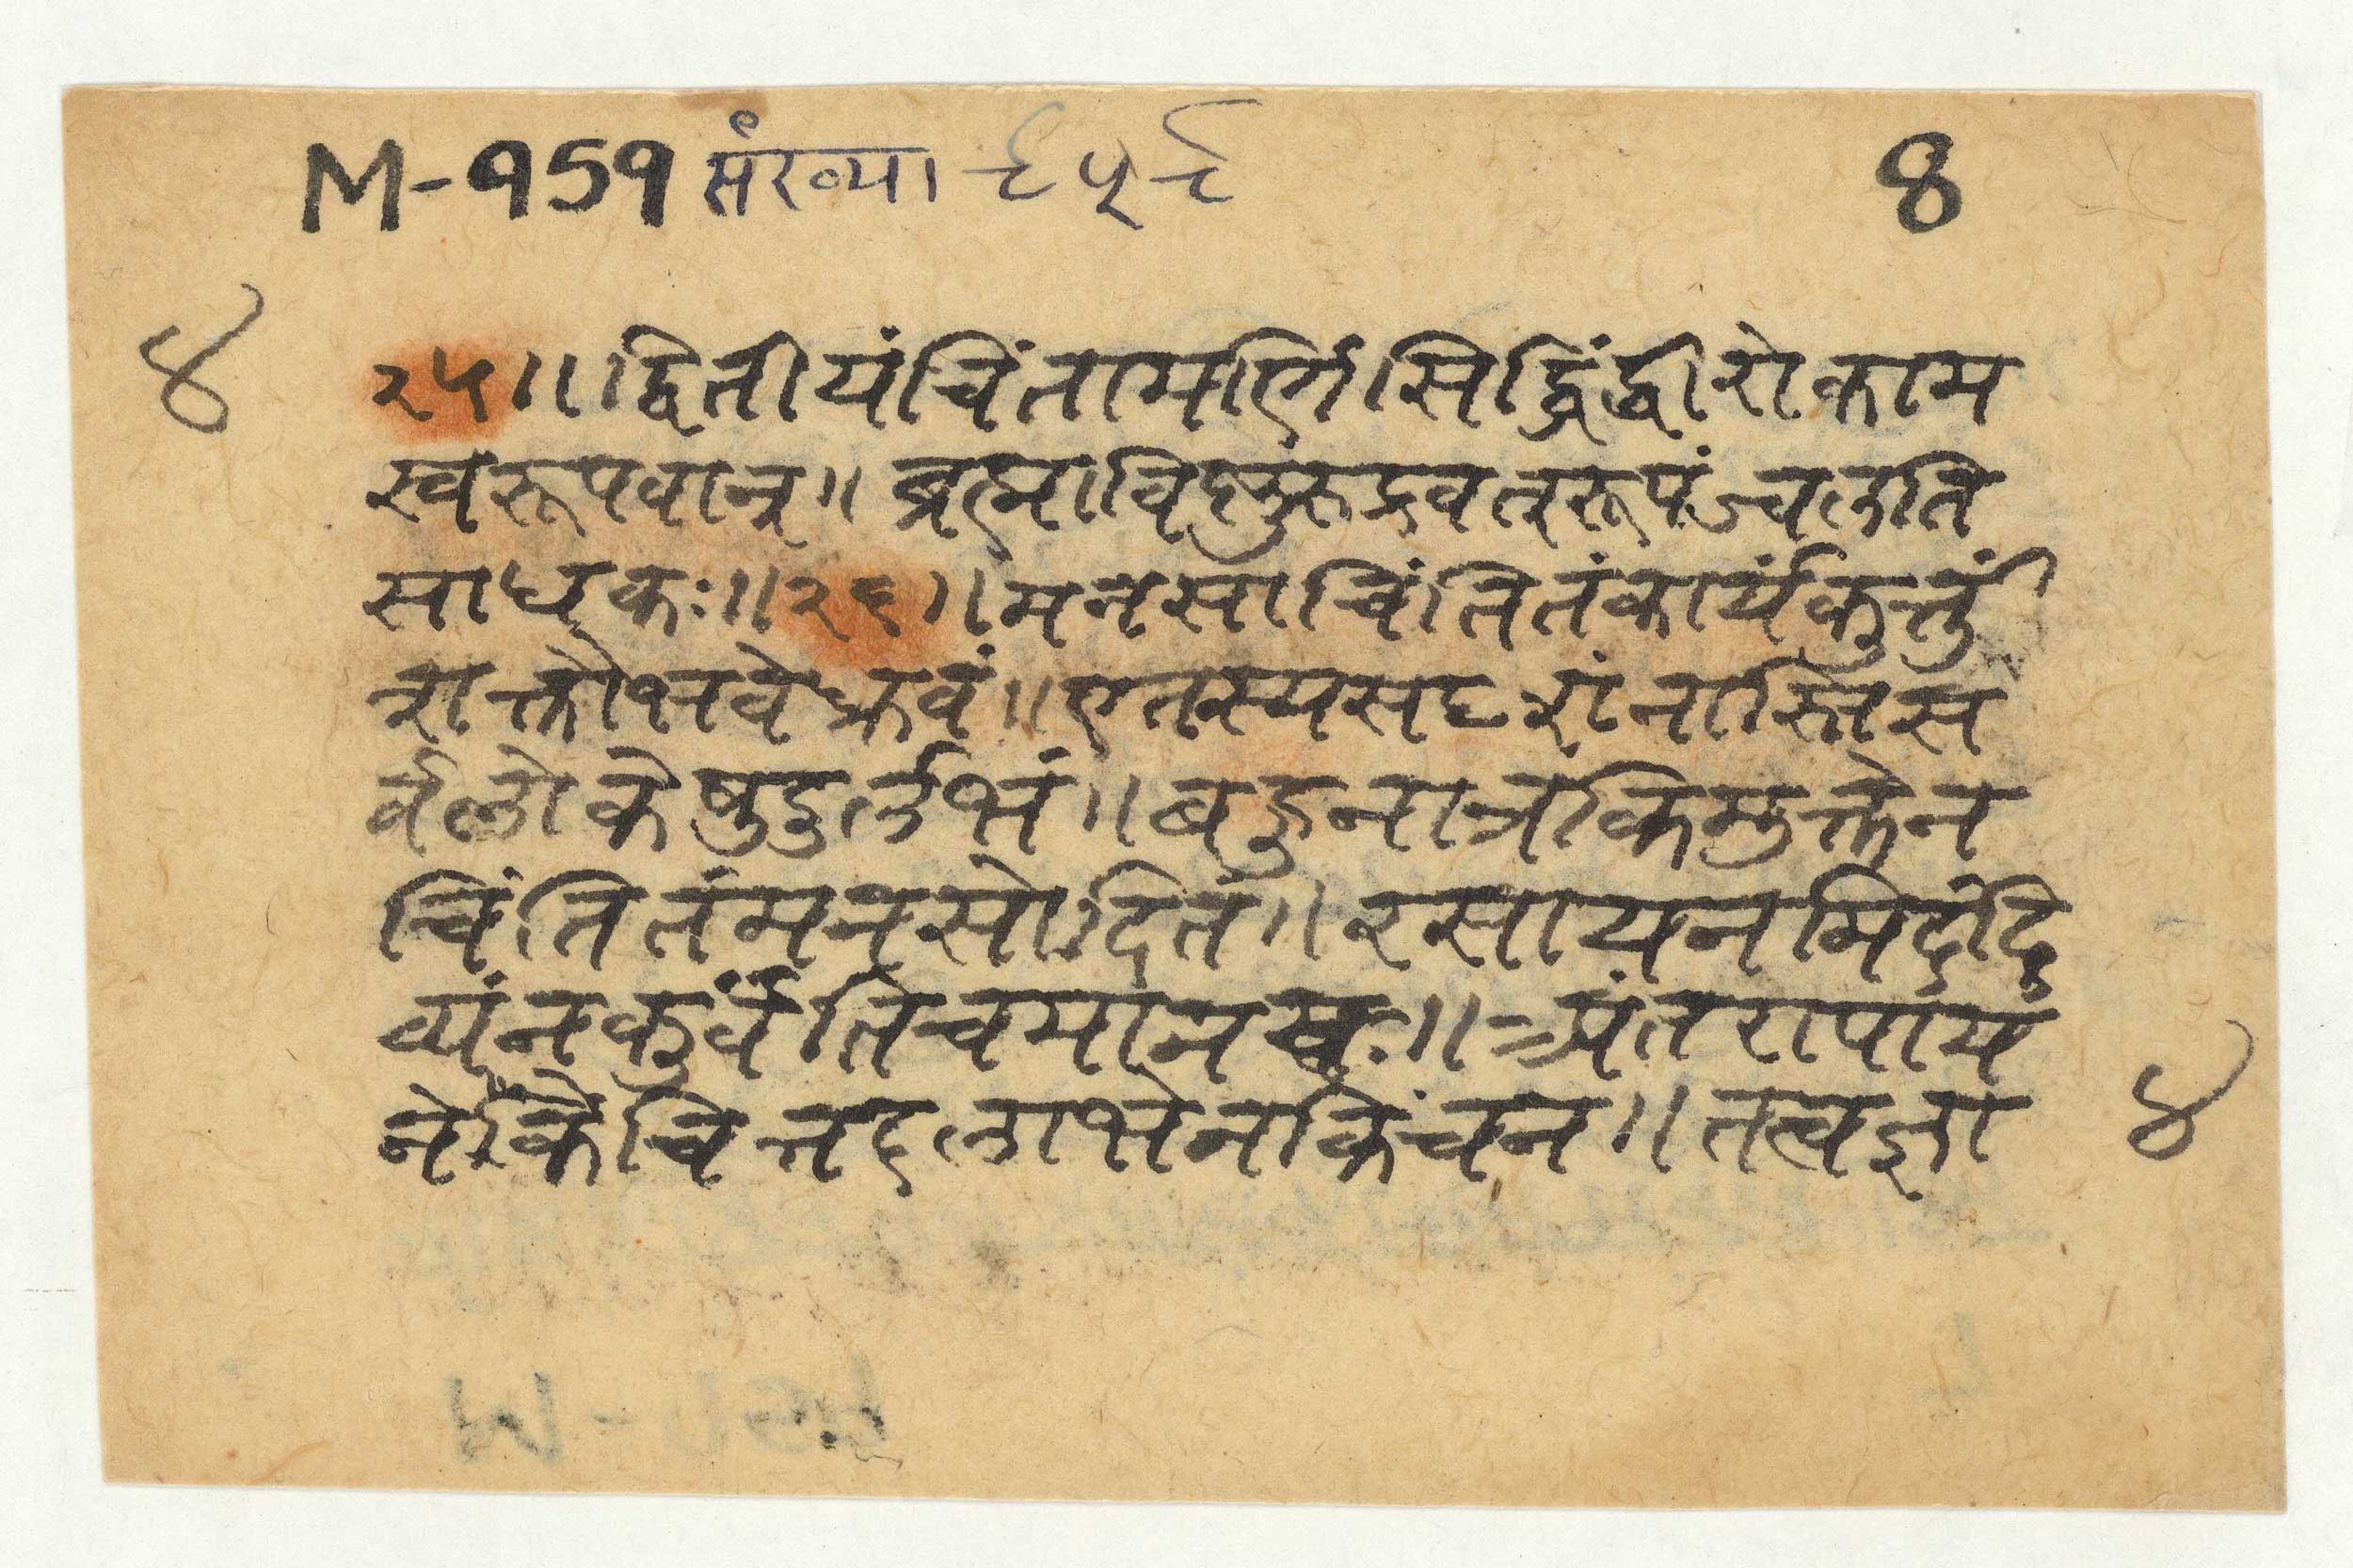 M-959 संख्या ९५९
8
४
२५॥ द्वितीयंचिंतामणिंसिद्धिंद्वीरोकाम
स्वरूपवान्॥ब्रह्माविष्णुरुद्रवत्रूपंऽचलति
साधकः॥२६॥मनसाचिंतितंकार्यंकर्त्तुं
शक्तोभवेध्रुवं॥एतस्यसदृशंनास्तिस
र्वलोकेषुदुर्लभं॥बहुनात्रकिमुक्तेन
चिंतितंमनसोदितं॥रसायनमिदंदि
व्यंनकुर्वंतिचमानवः॥अंतरापायं
नेकैचित्तदलाभेनकिंचन॥तत्वज्ञा
४